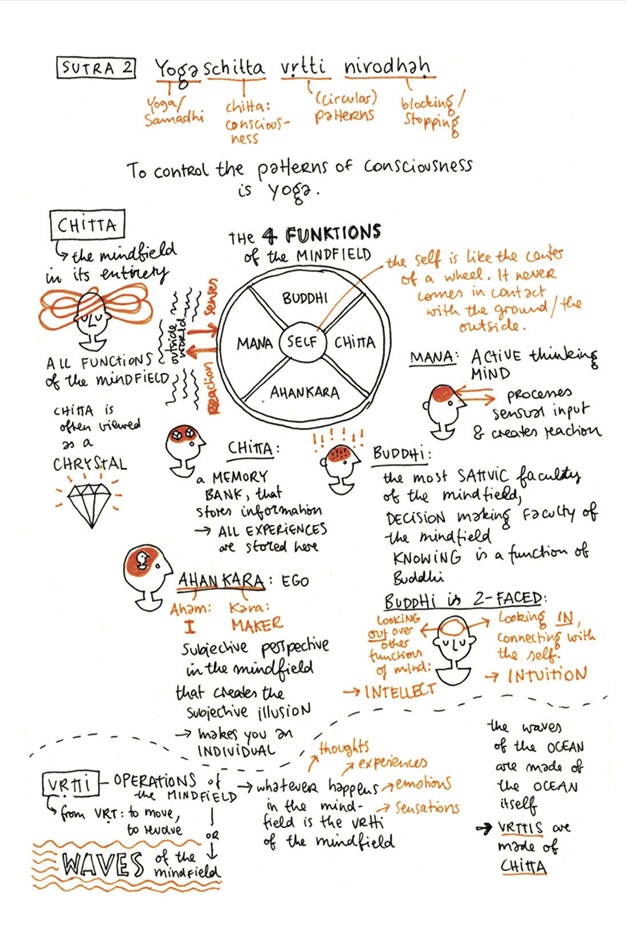 SUTRA 2 Yogaschitta vṛtti nirodhaḥ
Yoga/
Samadhi
chitta:
conscious-
ness
(circular)
patterns
blocking/
stopping
To control the patterns of consciousness
is yoga.
CHITTA
the mindfield
in its entirety
ALL FUNCTIONS
of the MINDFIELD
CHITTA is
often viewed
as a
CHRYSTAL
THE 4 FUNKTIONS
of the MINDFIELD
outside
world
senses
Reaction
BUDDHI
MANA SELF CHITTA
AHANKARA
the self is like the center
of a wheel. It never
comes in contact
with the ground/the
outside.
MANA: ACTIVE thinking
MIND
processes
sensual input
& creates reaction
CHITTA:
a MEMORY
BANK, that
stores information
→ ALL EXPERIENCES
are stored here
BUDDHI:
the most SATTVIC faculty
of the mindfield,
DECISION making Faculty of
the mindfield
KNOWING is a function of
Buddhi
AHANKARA: EGO
Aham: Kara:
I MAKER
Subjective perspective
in the mindfield
that creates the
subjective illusion
→ makes you an
INDIVIDUAL
BUDDHI is 2-FACED:
LOOKING
OUT over
other
functions
of mind:
→ INTELLECT
Looking IN,
connecting with
the self.
→ INTUITION
VṚTTI - OPERATIONS of
the MINDFIELD
from VṚT: to move,
to revolve
OR
WAVES of the
mindfield
→ whatever happens
in the mind-
field is the vrtti
of the mindfield
thoughts
experiences
emotions
sensations
the waves
of the OCEAN
are made of
the OCEAN
itself
→ VRTTIS are
made of
CHITTA